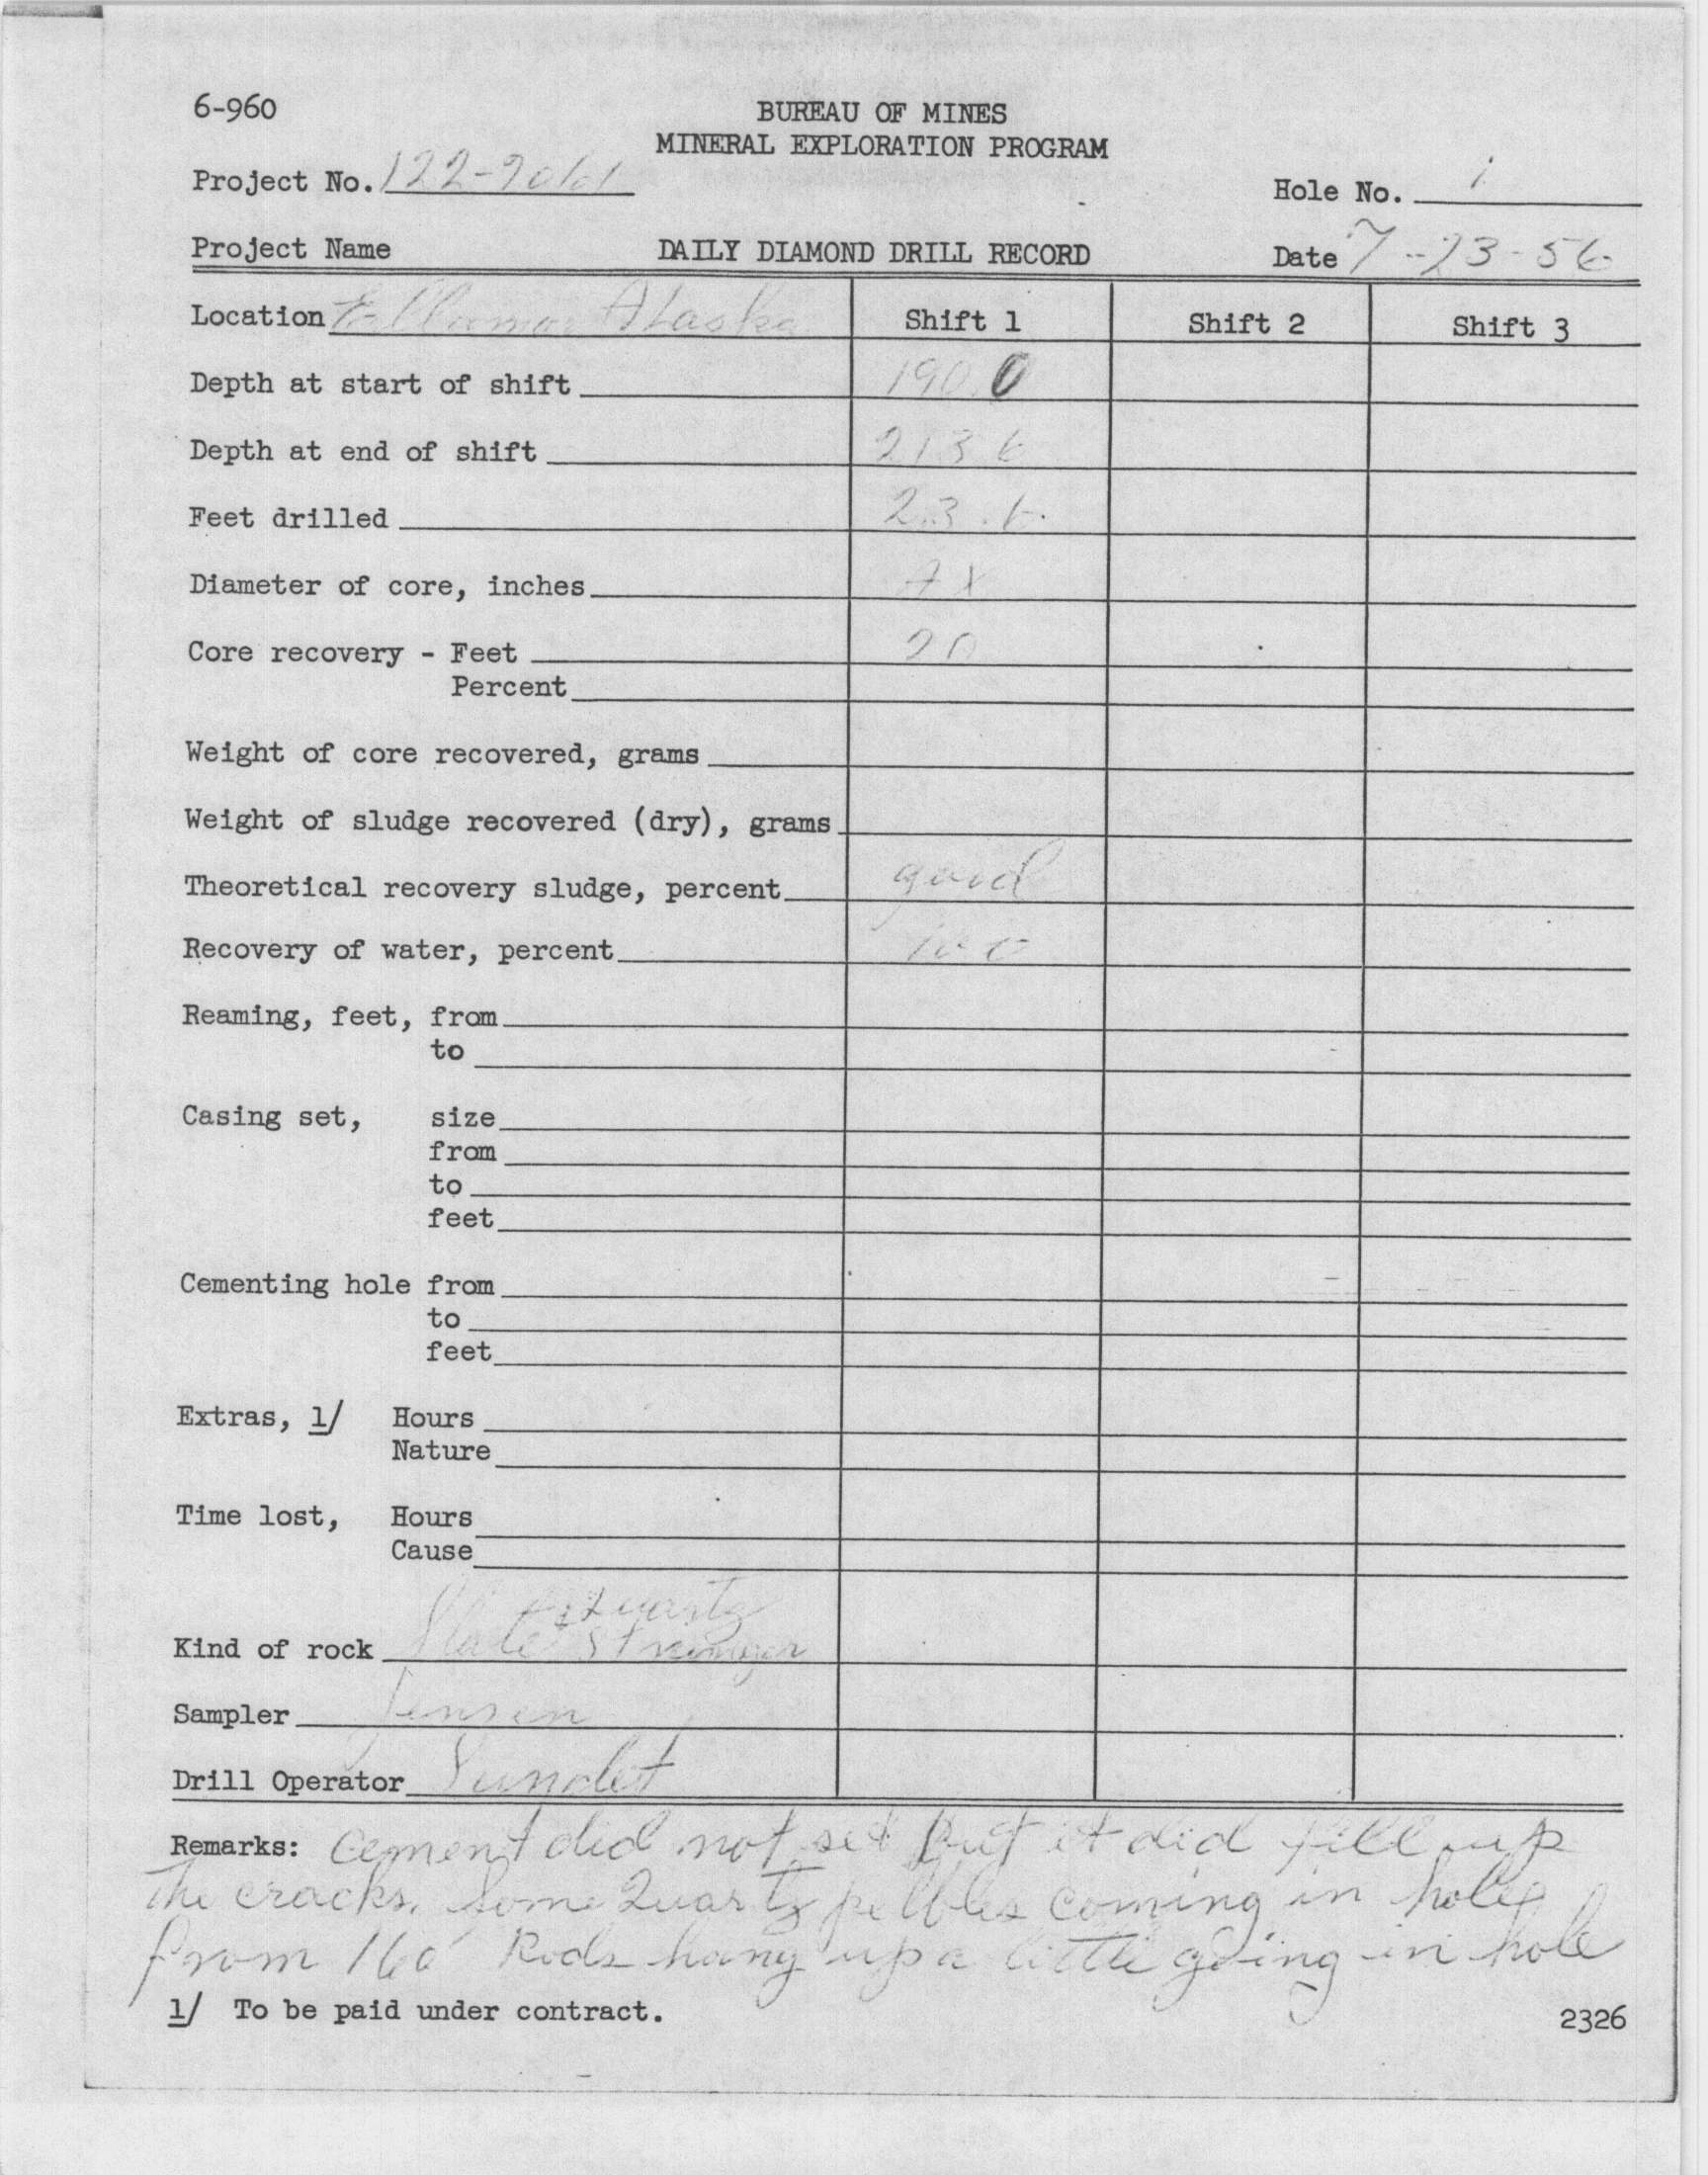 6-960
BUREAU OF MINES
MINERAL EXPLORATION PROGRAM
Project No. 122-
Hole No. 1
Project Name DAILY DIAMOND DRILL RECORD Date 7-23-56
Location Ellamar Alaska Shift 1 Shift 2 Shift 3
Depth at start of shift 190.0
Depth at end of shift 213.6
Feet drilled 23.6
Diameter of core, inches AX
Core recovery - Feet 20
Percent
Weight of core recovered, grams
Weight of sludge recovered (dry), grams
Theoretical recovery sludge, percent good
Recovery of water, percent 100
Reaming, feet, from
to
Casing set, size
from
to
feet
Cementing hole from
to
feet
Extras, 1/ Hours
Nature
Time lost, Hours
Cause
Quartz
Kind of rock Slate
Sampler Jensen
Drill Operator
Remarks: Cement did not set but it did fill up
the cracks. Some Quartz pebbles coming in hole
from 160' Rods hang up a little going in hole
1/ To be paid under contract.
2326